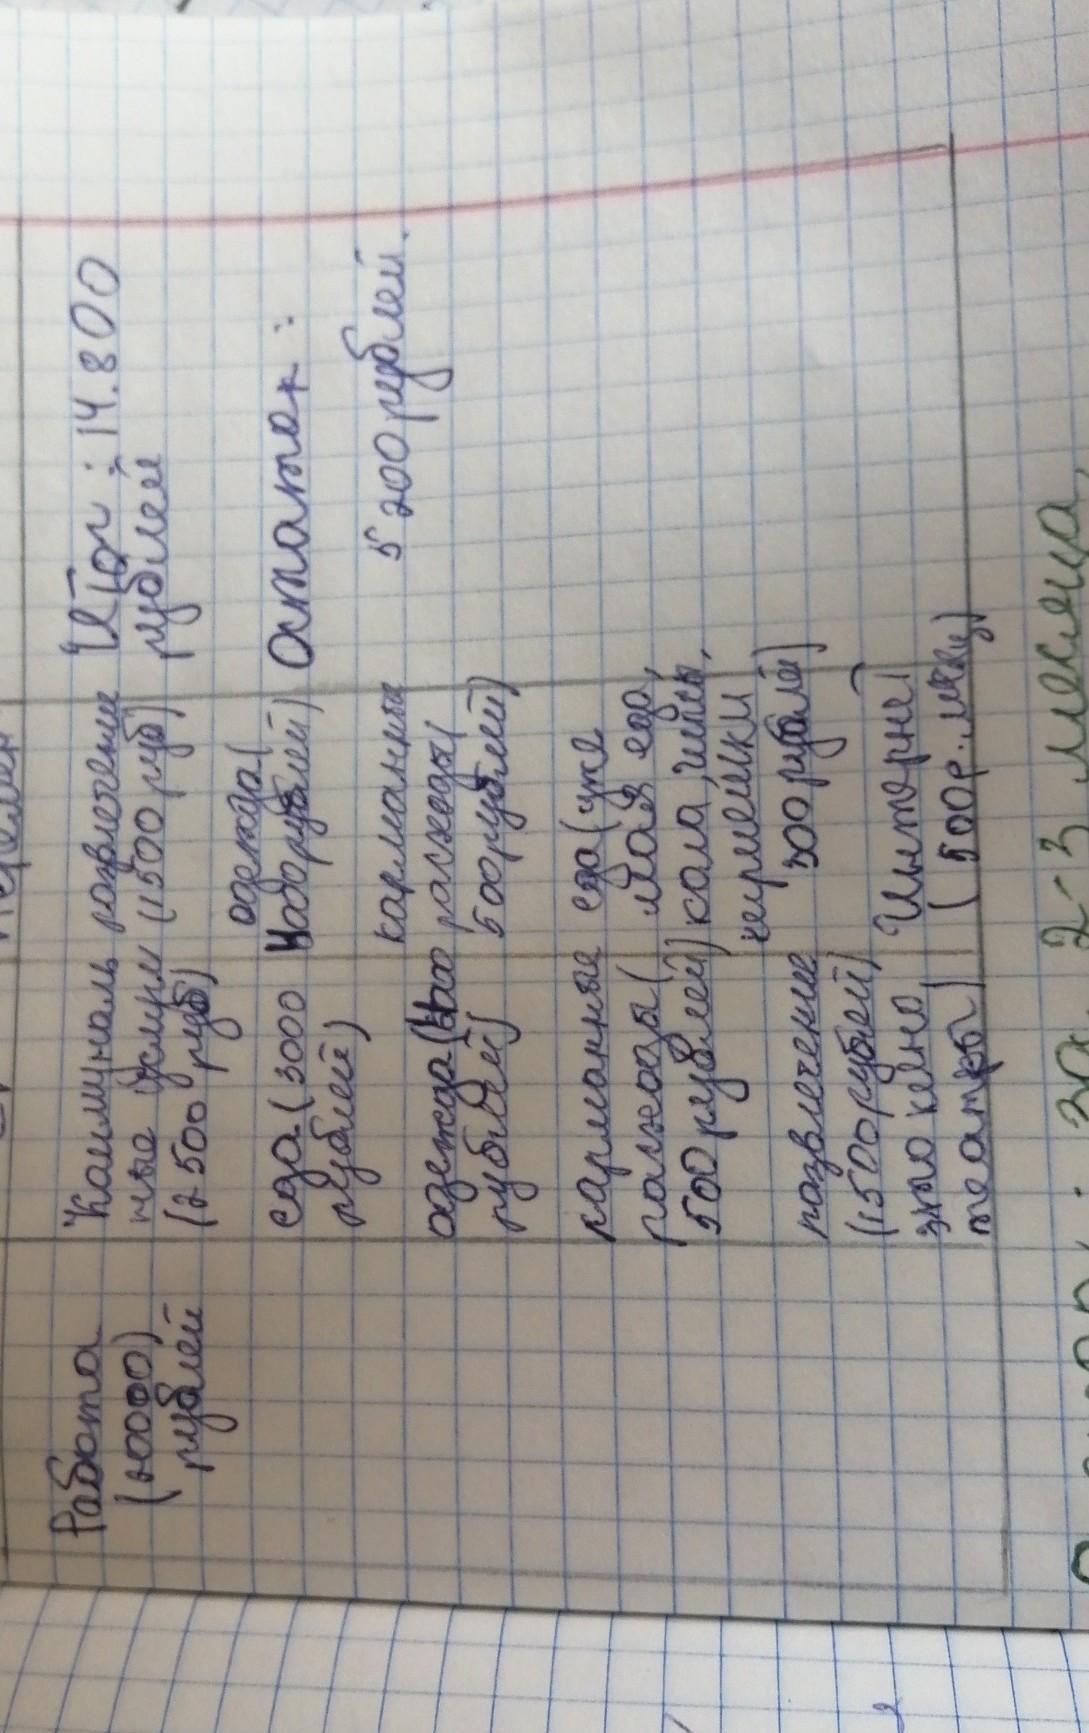 Работа
(20000)
рублей
Коммуналь
ные услуги
(2500 руб)
еда (3000
рублей)
одежда (4000
рублей)
карманные
расходы (
500 рублей)
развлечение
(1500 рублей)
это кино
театр
развлечение
(1500 руб)
одежда (
4000 рублей)
карманные
расходы (
500 рублей)
еда (уже
моя еда,
кола, чипсы,
300 рублей)
Интернет
(500р. месяц)
Итог: 14.800
рублей
Остаток:
5 200 рублей.
за 2-3 месяца